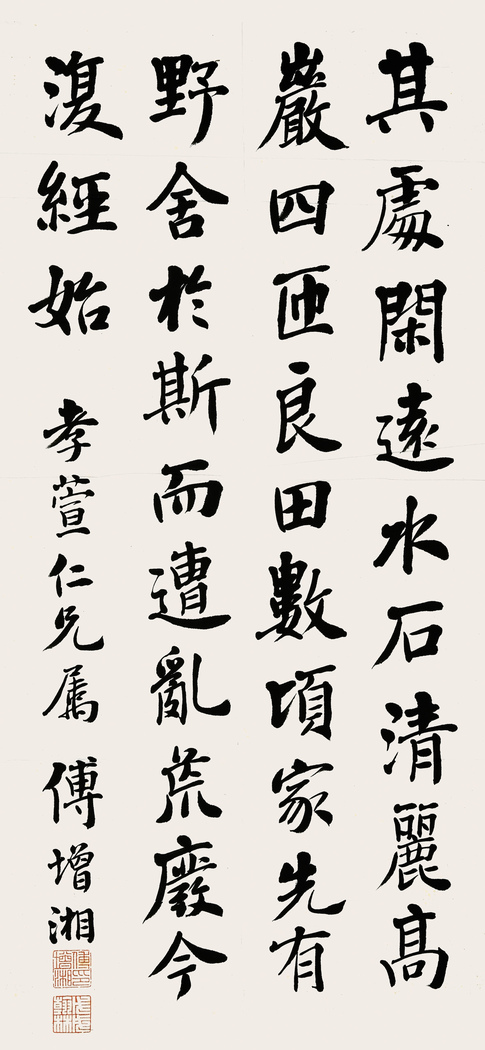 其處閑遠水石清麗高
巖四匝良田數頃家先有
野舍於斯而遭亂荒廢今
復經始
孝萱仁兄属
傅增湘